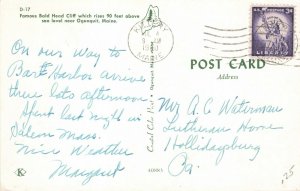 D-17
Famous Bald Head Cliff which rises 90 feet above
sea level near Ogunquit, Maine.
On our way to
Bar Harbor arrive
there late afternoon
Spent last night in
Salem Mass.
Nice Weather
Margaret
K
U.S. POSTAGE 3¢
LIBERTY
POST CARD
Address
Mr. A. C. Waterman
Lutheran Home
Hollidaysburg
Pa.
25